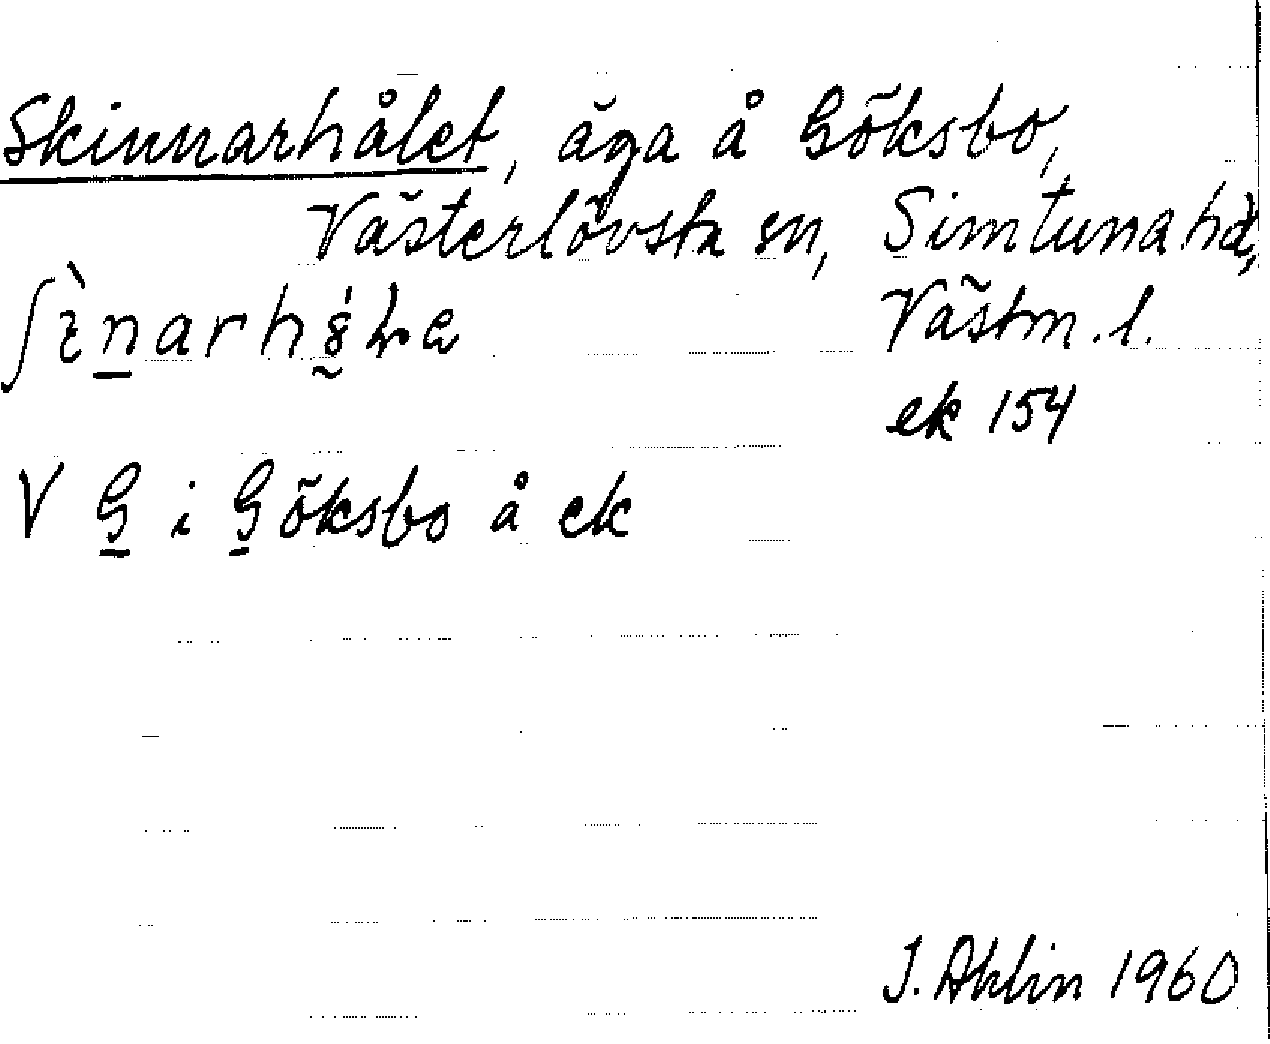 Skinnarhålet, äga å Göksbo,
Västerlövsta sn, Simtuna hd,
Västm. l.
ek 154
V G i Göksbo å ek
J. Ahlin 1960